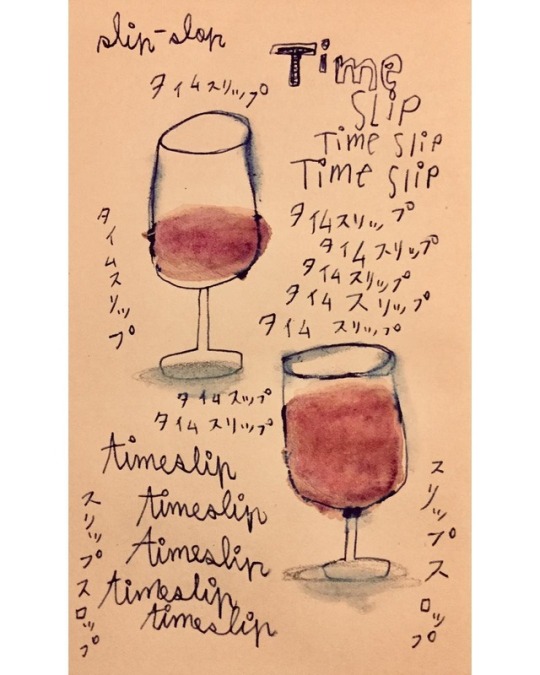 slip-slop
Time
SLiP
Time Slip
Time Slip
タイムスリップ
タイムスリップ
タイムスリップ
タイムスリップ
タイムスリップ
タイムスリップ
タイム スリップ
タイムスップ
タイムスリップ
timeslip
timeslip
timeslip
timeslip
timeslip
スリップスロップ
スリップスロップ